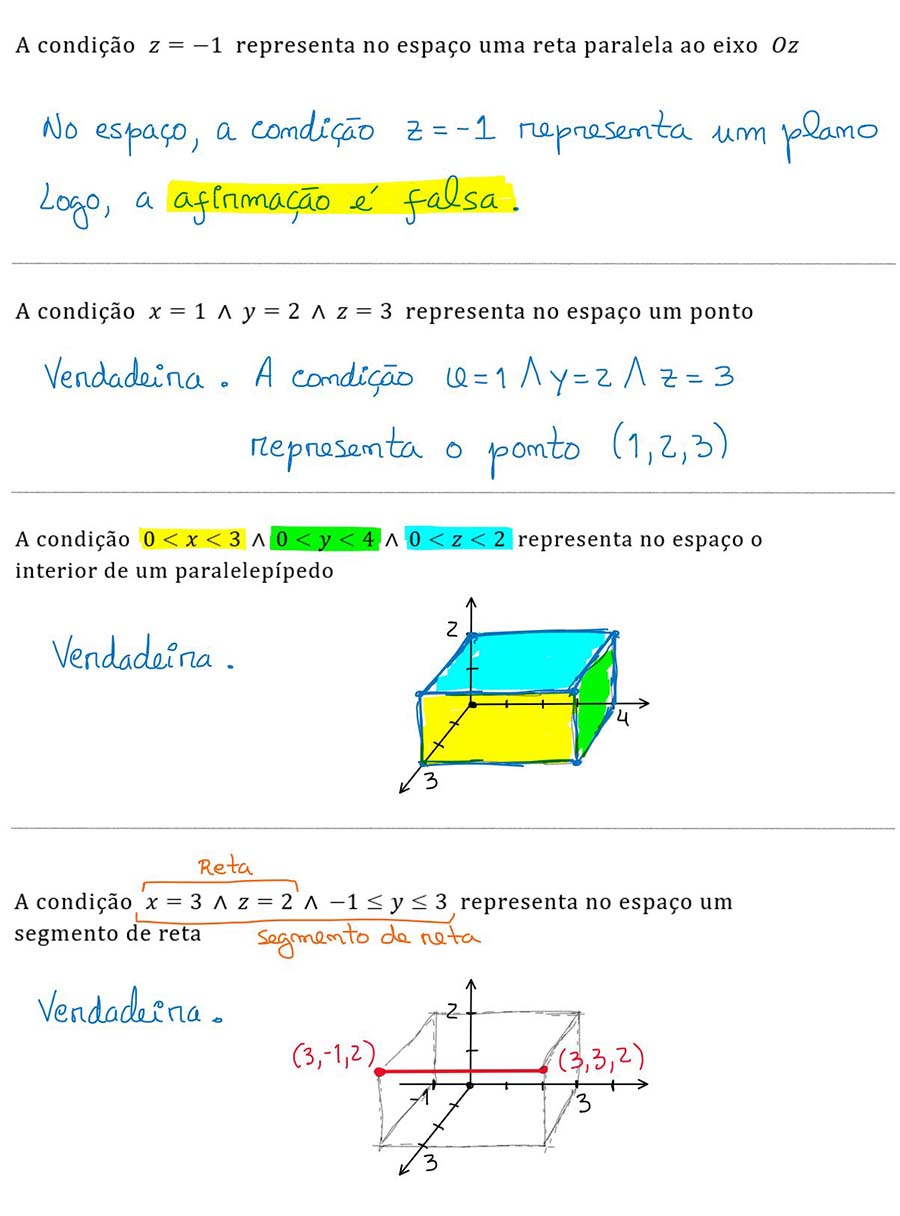 A condição z = −1 representa no espaço uma reta paralela ao eixo Oz
No espaço, a condição z = -1 representa um plano
Logo, a afirmação é falsa.
A condição x = 1 ∧ y = 2 ∧ z = 3 representa no espaço um ponto
Verdadeira. A condição x=1 ∧ y=2 ∧ z=3
representa o ponto (1,2,3)
A condição 0 < x < 3 ∧ 0 < y < 4 ∧ 0 < z < 2 representa no espaço o
interior de um paralelepípedo
2
Verdadeira.
4
3
Reta
A condição x = 3 ∧ z = 2 ∧ −1 ≤ y ≤ 3 representa no espaço um
segmento de reta
segmento de reta
Verdadeira.
2
(3,-1,2)
(3,3,2)
-1
3
3